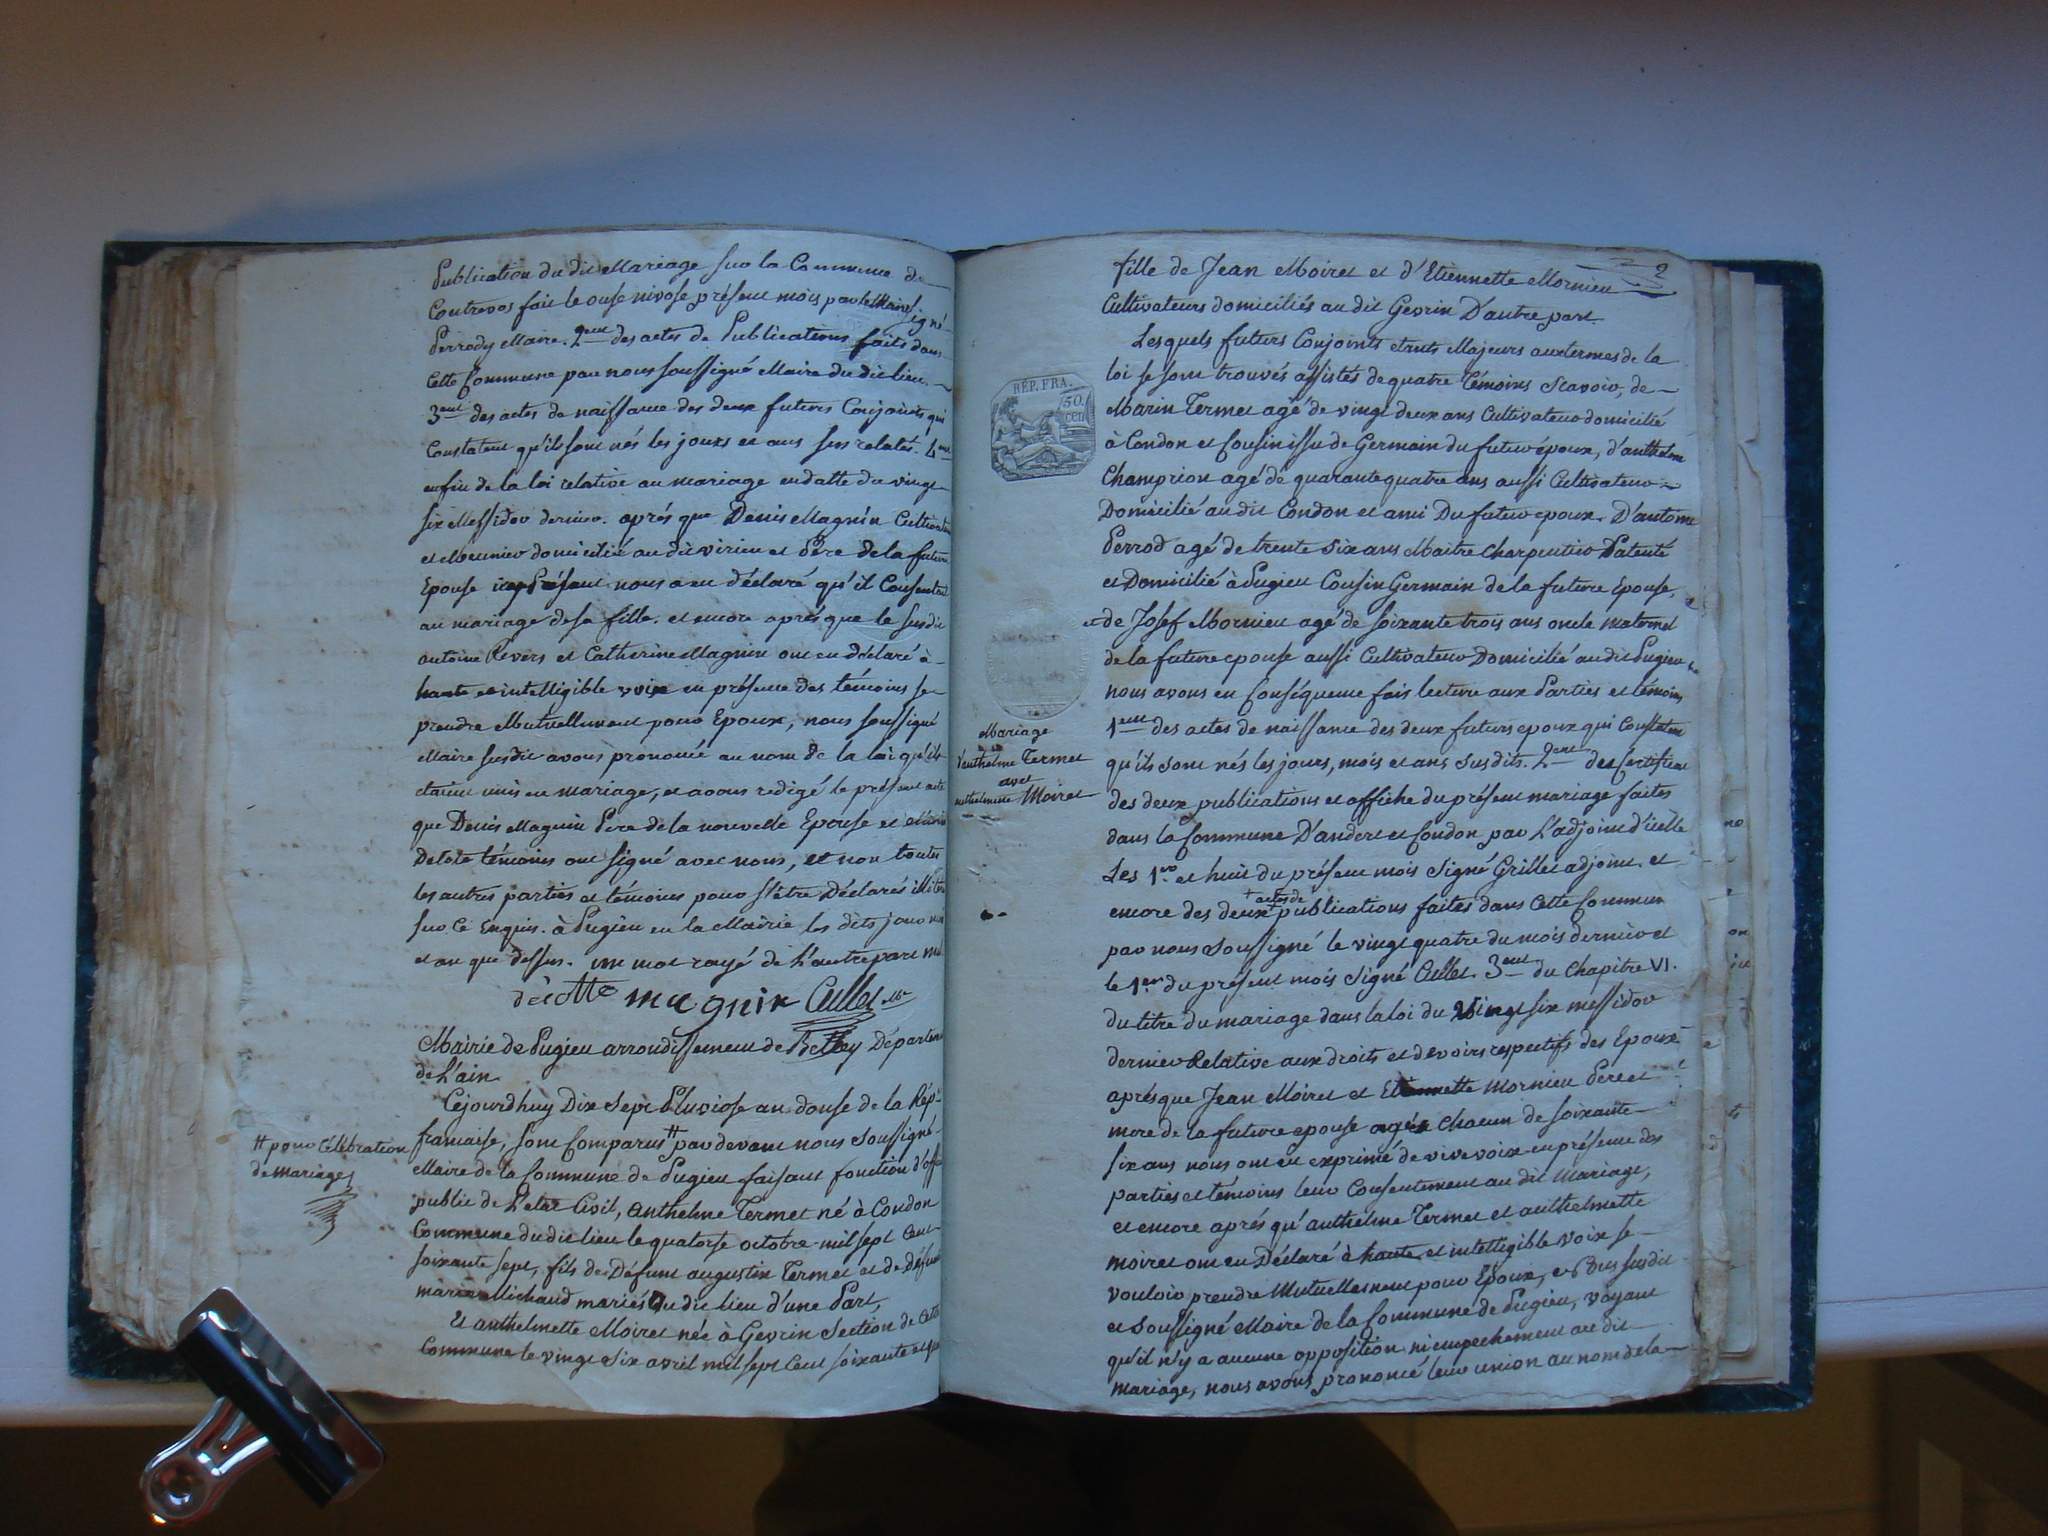 Publication du dit Mariage sur la Commune de
Contrevos fait le onse nivose présent mois par le Maire signé
Perrody Maire. 2eme des actes de Publications faits dans
cette Commune par nous soussigné Maire du dit lieu.
3eme des actes de naissance des deux futurs Conjoints qui
Constatent qu'ils sont nés les jours et ans sus relatés. 4eme
enfin de la loi relative au mariage en datte du vingt
six Messidor dernier. aprés que Denis Magnin Cultivateur
et Meunier domicilié au dit virieu et Pére de la future
Epouse icy Présent nous a eu déclaré qu'il Consentait
au mariage de sa fille. et encore aprés que le susdit
antoine Revers et Catherine Magnin ont eu déclaré à
haute et intelligible voix en présence des témoins se
prendre Mutuellement pour Epoux, nous soussigné
Maire susdit avons prononcé au nom de la loi qu'ils
étaient unis en mariage, et avons redigé le présent acte
que Denis Magnin Pere de la nouvelle Epouse et
témoins ont signé avec nous, et non toutes
les autres parties et témoins pour s'être Déclarés
sur Ce Enquis. à Pugieu en la Mairie les dits jour moi
et an que dessus. un mot rayé de l'autre part nul
magnin Cullet Me
Mairie de Pugieu arrondissement de Belley Départem
de L'ain
Cejourdhuy Dix Sept Pluviose an douse de la Rép
francaise, sont Comparus # par devant nous soussigné
# pour Célébration
de mariage
Maire de la Commune de Pugieu faisant fonction d'offi
public de l'etat Civil, anthelme Termet né à Condon
Commune du dit lieu le quatorse octobre mil sept cent
soixante sept, fils de Défunt augustin Termet et de défun
marie Michaud mariés du dit lieu d'une Part,
Et anthelmette Moiret née à Gevrin Section de cette
Commune le vingt six avril mil sept Cent soixante et
2
fille de Jean Moiret et d'Etiennette Mornieu
Cultivateurs domiciliés au dit Gevrin D'autre part.
Lesquels futurs Conjoints etants Majeurs aux termes de la
loi se sont trouvés assistés de quatre Témoins Scavoir, de
Marin Termet agé de vingt deux ans Cultivateur domicilié
à Condon et Cousin issu de Germain du futur époux, d'anthelme
Champrion agé de quarante quatre ans aussi Cultivateur
Domicilié au dit Condon et ami Du futur epoux. D'antoine
Perrod agé de trente six ans Maitre Charpentier Patenté
et Domicilié à Pugieu Cousin Germain de la future Epouse,
et de Josef Mornieu agé de soixante trois ans oncle maternel
de la future epouse aussi Cultivateur Domicilié au dit Pugieu
nous avons en Conséquence fais lecture aux Parties et témoins
1eme des actes de naissance des deux futurs epoux qui Constatent
qu'ils sont nés les jours, mois et ans susdits. 2eme des Certificat
des deux publications et affiche du présent mariage faites
dans la Commune D'andert et Condon par L'adjoint d'icelle
Les 1er et huit du présent mois signé Grillet adjoint. et
+ actes de
encore des deux + publications faites dans Cette Commun
par nous soussigné le vingt quatre du mois dernier et
le 1er du présent mois signé Cullet. 3eme du Chapitre VI.
du titre du mariage dans la loi du Vingt six messidor
dernier Relative aux droits et devoirs respectifs des Epoux
aprésque Jean Moiret et Etiennette mornieu Pere et
mere de la future epouse agés chacun de soixante
six ans nous ont eu exprimé de vive voix en présence des
parties et témoins leur Consentement au dit mariage,
et encore aprés qu'anthelme Termet et anthelmette
moiret ont eu Déclaré à haute et intelligible voix se
vouloir prendre Mutuellement pour Epoux, nous susdit
et soussigné Maire de la Commune de Pugieu, voyant
qu'il n'y a aucune opposition ni empechement au dit
mariage, nous avons prononcé leur union au nom de la
REP. FRA.
50
cen
Mariage
d'anthelme Termet
avec
anthelmette Moiret